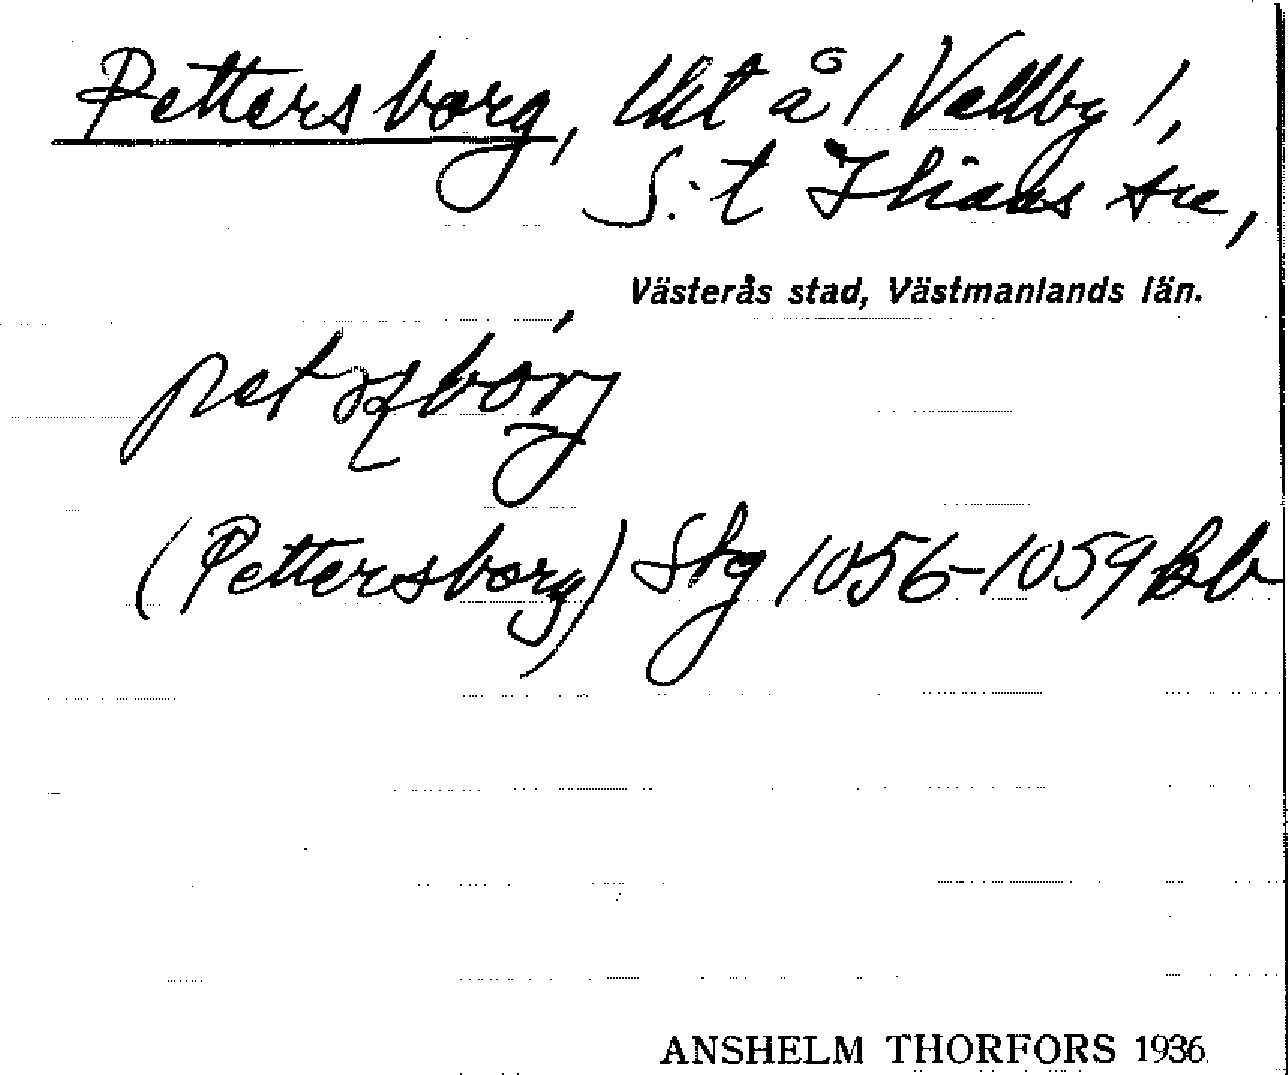 Pettersborg, lht å / Vallby /,
S:t Ilians sn,
Västerås stad, Västmanlands län.
(Pettersborg) Stg 1056-1059 Bb
ANSHELM THORFORS 1936